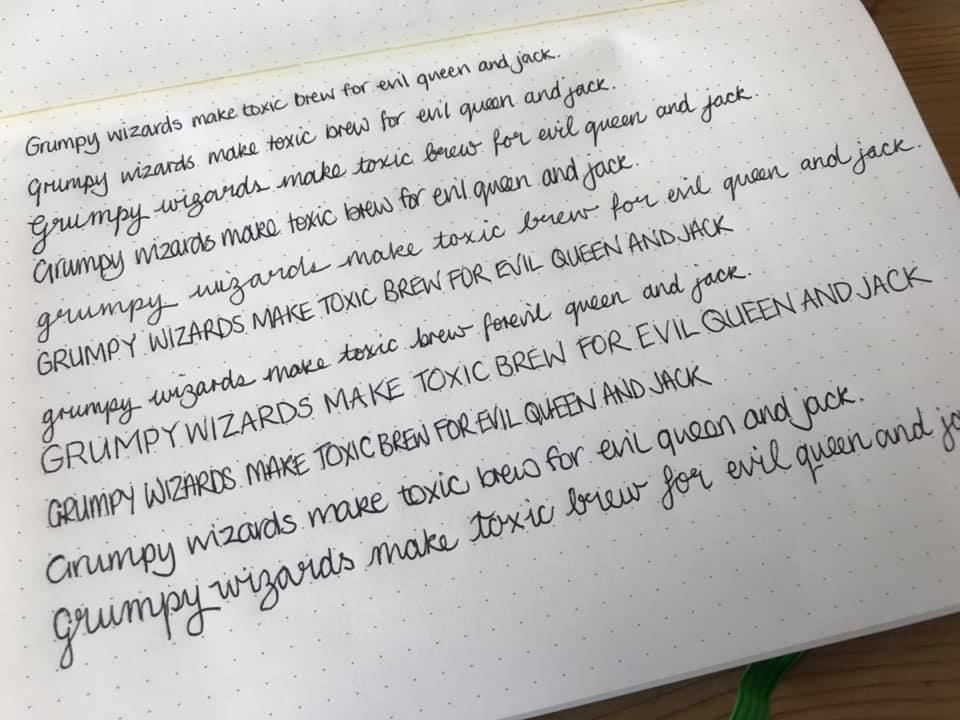 Grumpy wizards make toxic brew for evil queen and jack.
grumpy wizards make toxic brew for evil queen and jack.
Grumpy wizards make toxic brew for evil queen and jack.
Grumpy wizards make toxic brew for evil queen and jack.
grumpy wizards make toxic brew for evil queen and jack.
GRUMPY WIZARDS MAKE TOXIC BREW FOR EVIL QUEEN AND JACK
grumpy wizards make toxic brew for evil queen and jack.
GRUMPY WIZARDS MAKE TOXIC BREW FOR EVIL QUEEN AND JACK
GRUMPY WIZARDS MAKE TOXIC BREW FOR EVIL QUEEN AND JACK
Grumpy wizards make toxic brew for evil queen and jack.
grumpy wizards make toxic brew for evil queen and